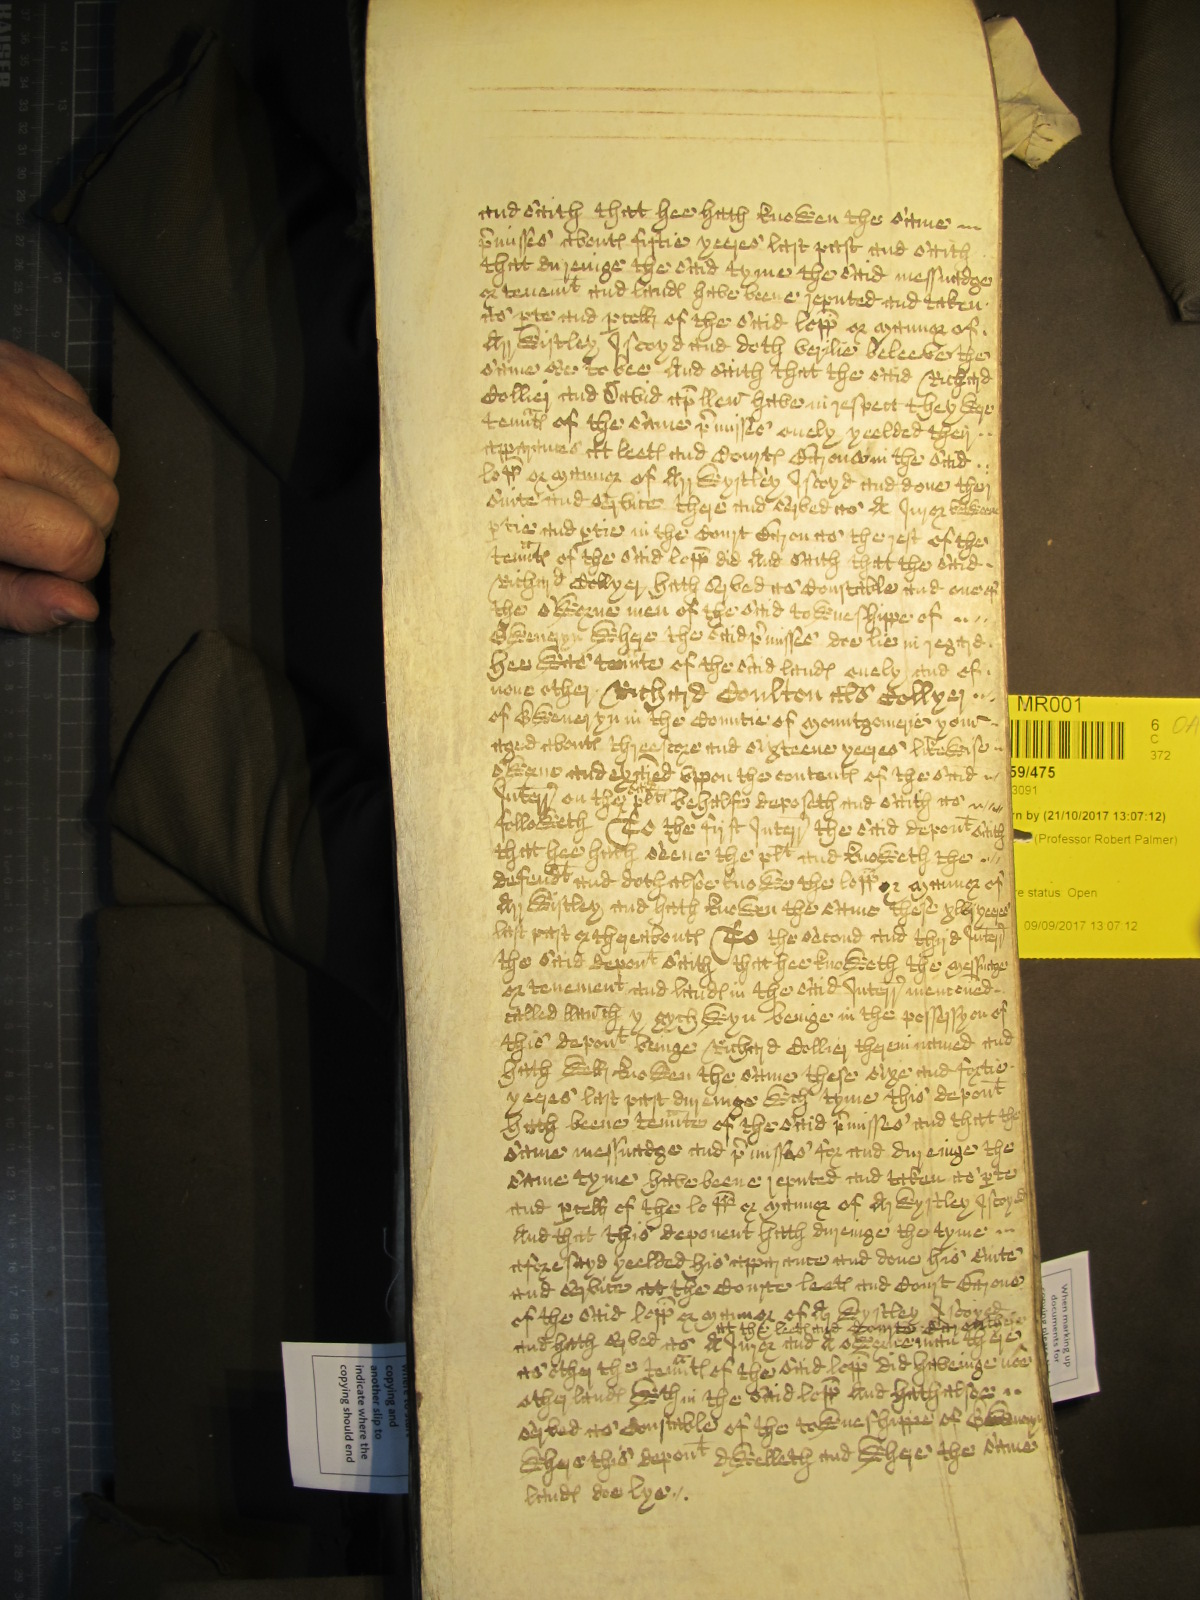 and saith that hee hath knowen the same
p̃misses about fiftie yeeres last past and saith
that duringe the said tyme the said messuadge
or tenemt and lands have beene reputed and taken
as pte and pcell of the said lopp or mannor of
Arrwistley Iscoyd and doth verilie beleeve the
same soe to bee And saith that the said Richard
Collier and David ap llen have in respect they were
tennts of the same p̃misses onely yeelded their
apparances att leets and Courts Barons in the said
lopp or mannor of Arrwystley Iscoyd and done their
suite and service there and served as a Juror betweene
ptie and ptie in the Court Baron as the rest of the
tennts of the said lopp did And saith that the said
Richard Collyer hath served as Constable and one of
the sworne men of the said towneshippe of
where the said p̃misses doe lie in regard
hee was tennte of the said lands onely and of
none other Richard Coulton als Collyer
of in the Countie of Mountgomerie yom̃
aged about threescore and sixteene yeeres likewise
sworne and exaied uppon the contents of the said
Interr on the said plts behalfe deposeth and saith as
followeth To the first Interr the said depont saith
that hee hath seene the plt and knoweth the
defendt and doth alsoe knowe the lopp or mannor of
Arrwistley and hath knowen the same these xlvj yeeres
last past or thereabouts To the second and third Interr
the said depont saith that hee knoweth the messuage
or tenement and lands in the said Interr menconed
called y beinge in the possession of
this depont beinge Richard Collier therein named and
hath well knowen the same these sixe and fortie
yeeres last past duringe wch tyme this depont
hath beene tennte of the said p̃misses and that the
same messuadge and p̃misses for and duringe the
same tyme have beene reputed and taken as pte
and pcell of the lopp or mannor of Arwystley Iscoyd
And that this deponent hath duringe the tyme
aforesayd yeelded his apparance and done his suite
and service att the Courte leets and Court Barons
of the said lopp or mannor of Arwystley Iscoyed
att the leets and Courts Barons there
and hath served as a Juror and a sworne man there
as other the tennts of the said lopp did haveinge noe
other lands wthin the said lopp And hath alsoe
served as Constable of the towneshippe of
where this depont dwelleth and where the same
lands doe lye
MR001
6
C
372
59/475
3091
rn by (21/10/2017 13:07:12)
(Professor Robert Palmer)
re status Open
09/09/2017 13:07:12
When marking up
documents for
copying and
another slip to
indicate where the
copying should end